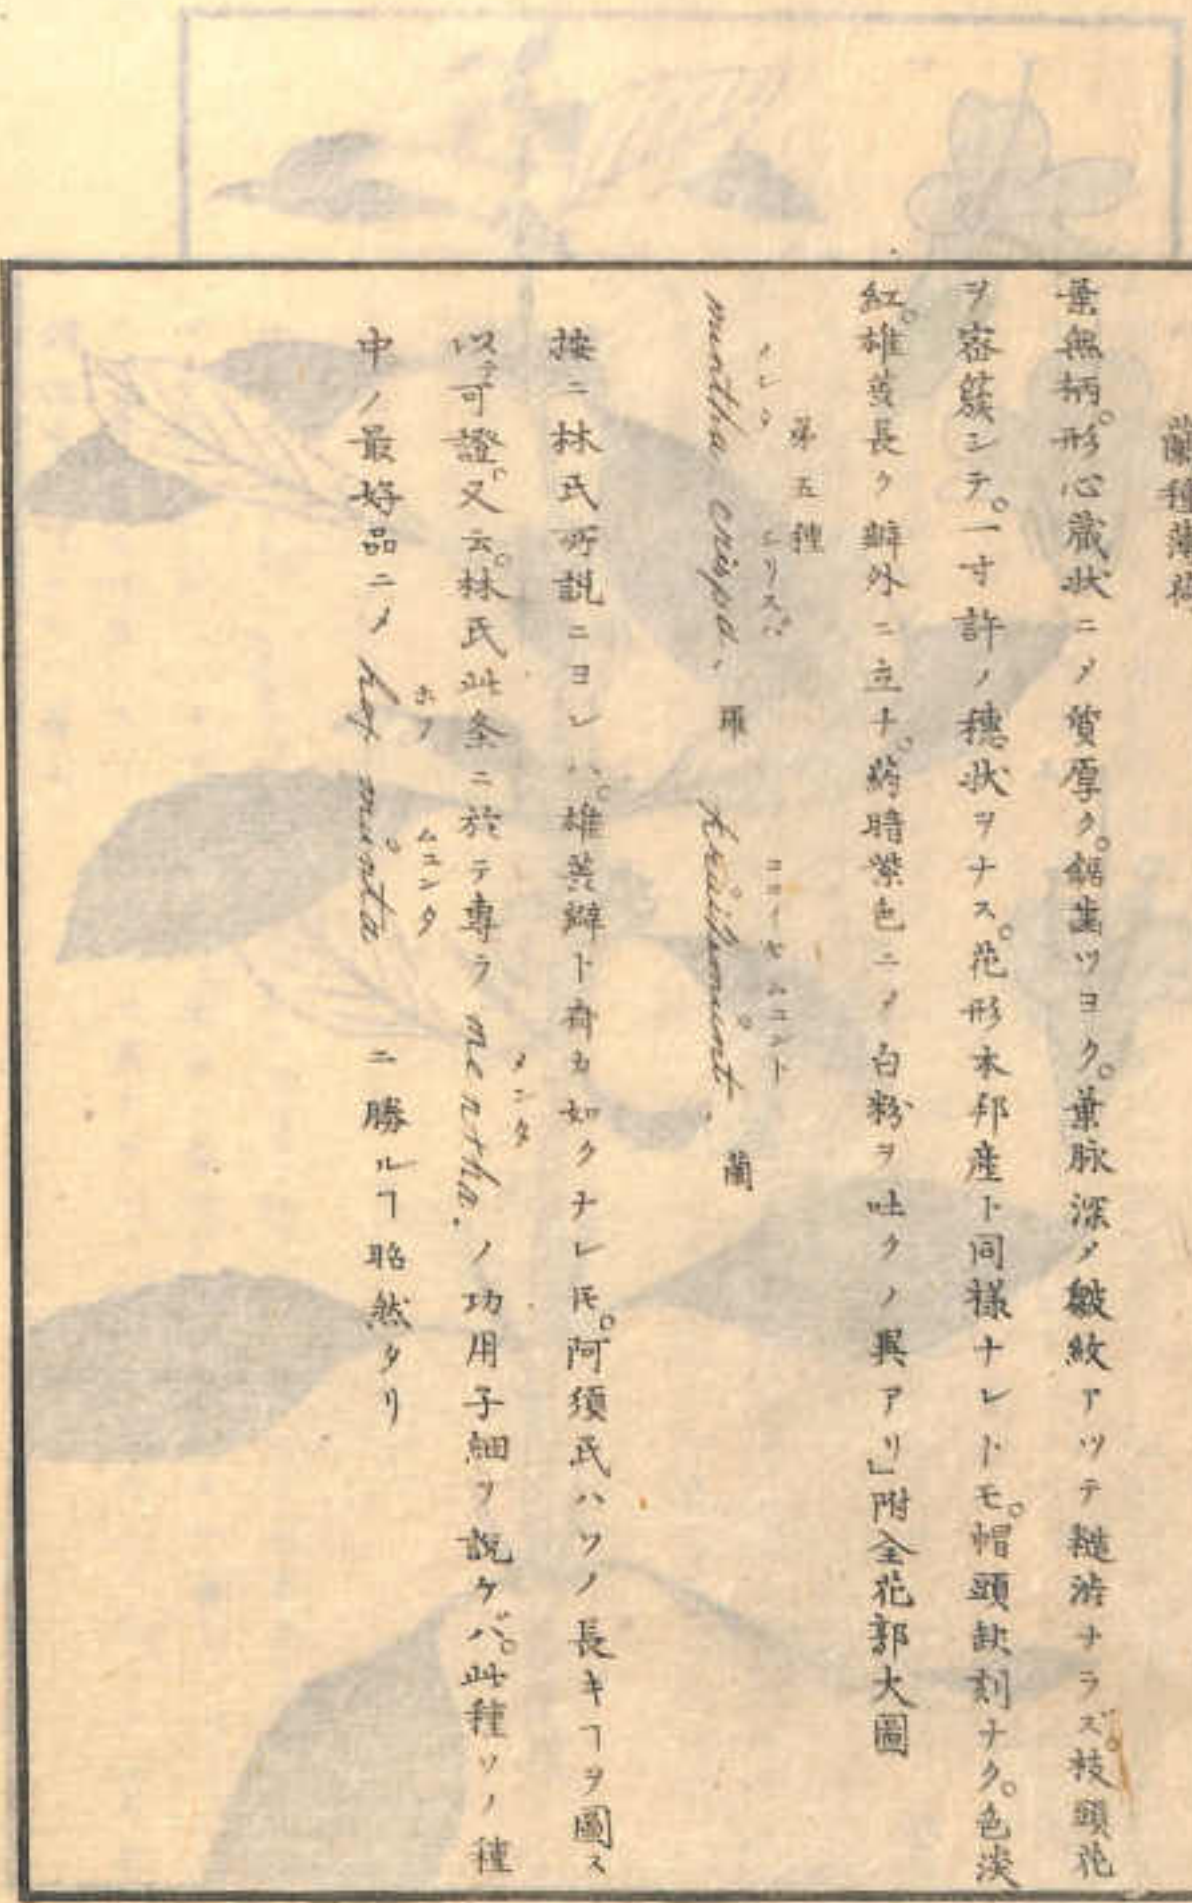 蘭種薄荷
葉無柄。形心臓状ニ〆質厚ク。鋸歯ツヨク。葉脉深〆皺紋アツテ糙渋ナラズ。枝頭花
ヲ密簇シテ。一寸許ノ穗状ヲナス。花形本邦産ト同様ナレトモ。帽頭缺刻ナク。色淡
紅。雄蕊長ク辧外ニ立ナ。葯暗紫色ニ〆白粉ヲ吐クノ異アリ」附全花郭大圖
第五種
mentha crispa, 羅 kruissmunt, 蘭
按ニ林氏所説ニヨレハ。雄蕊辧ト齊カ如クナレ𪜈。阿須氏ハソノ長キヿヲ圖ス
以テ可證。又云。林氏此条ニ於テ専ラ mentha. ノ功用子細ヲ説ケバ。此種ソノ種
中ノ最好品ニ〆 hof munta ニ勝ルヿ昭然タリ